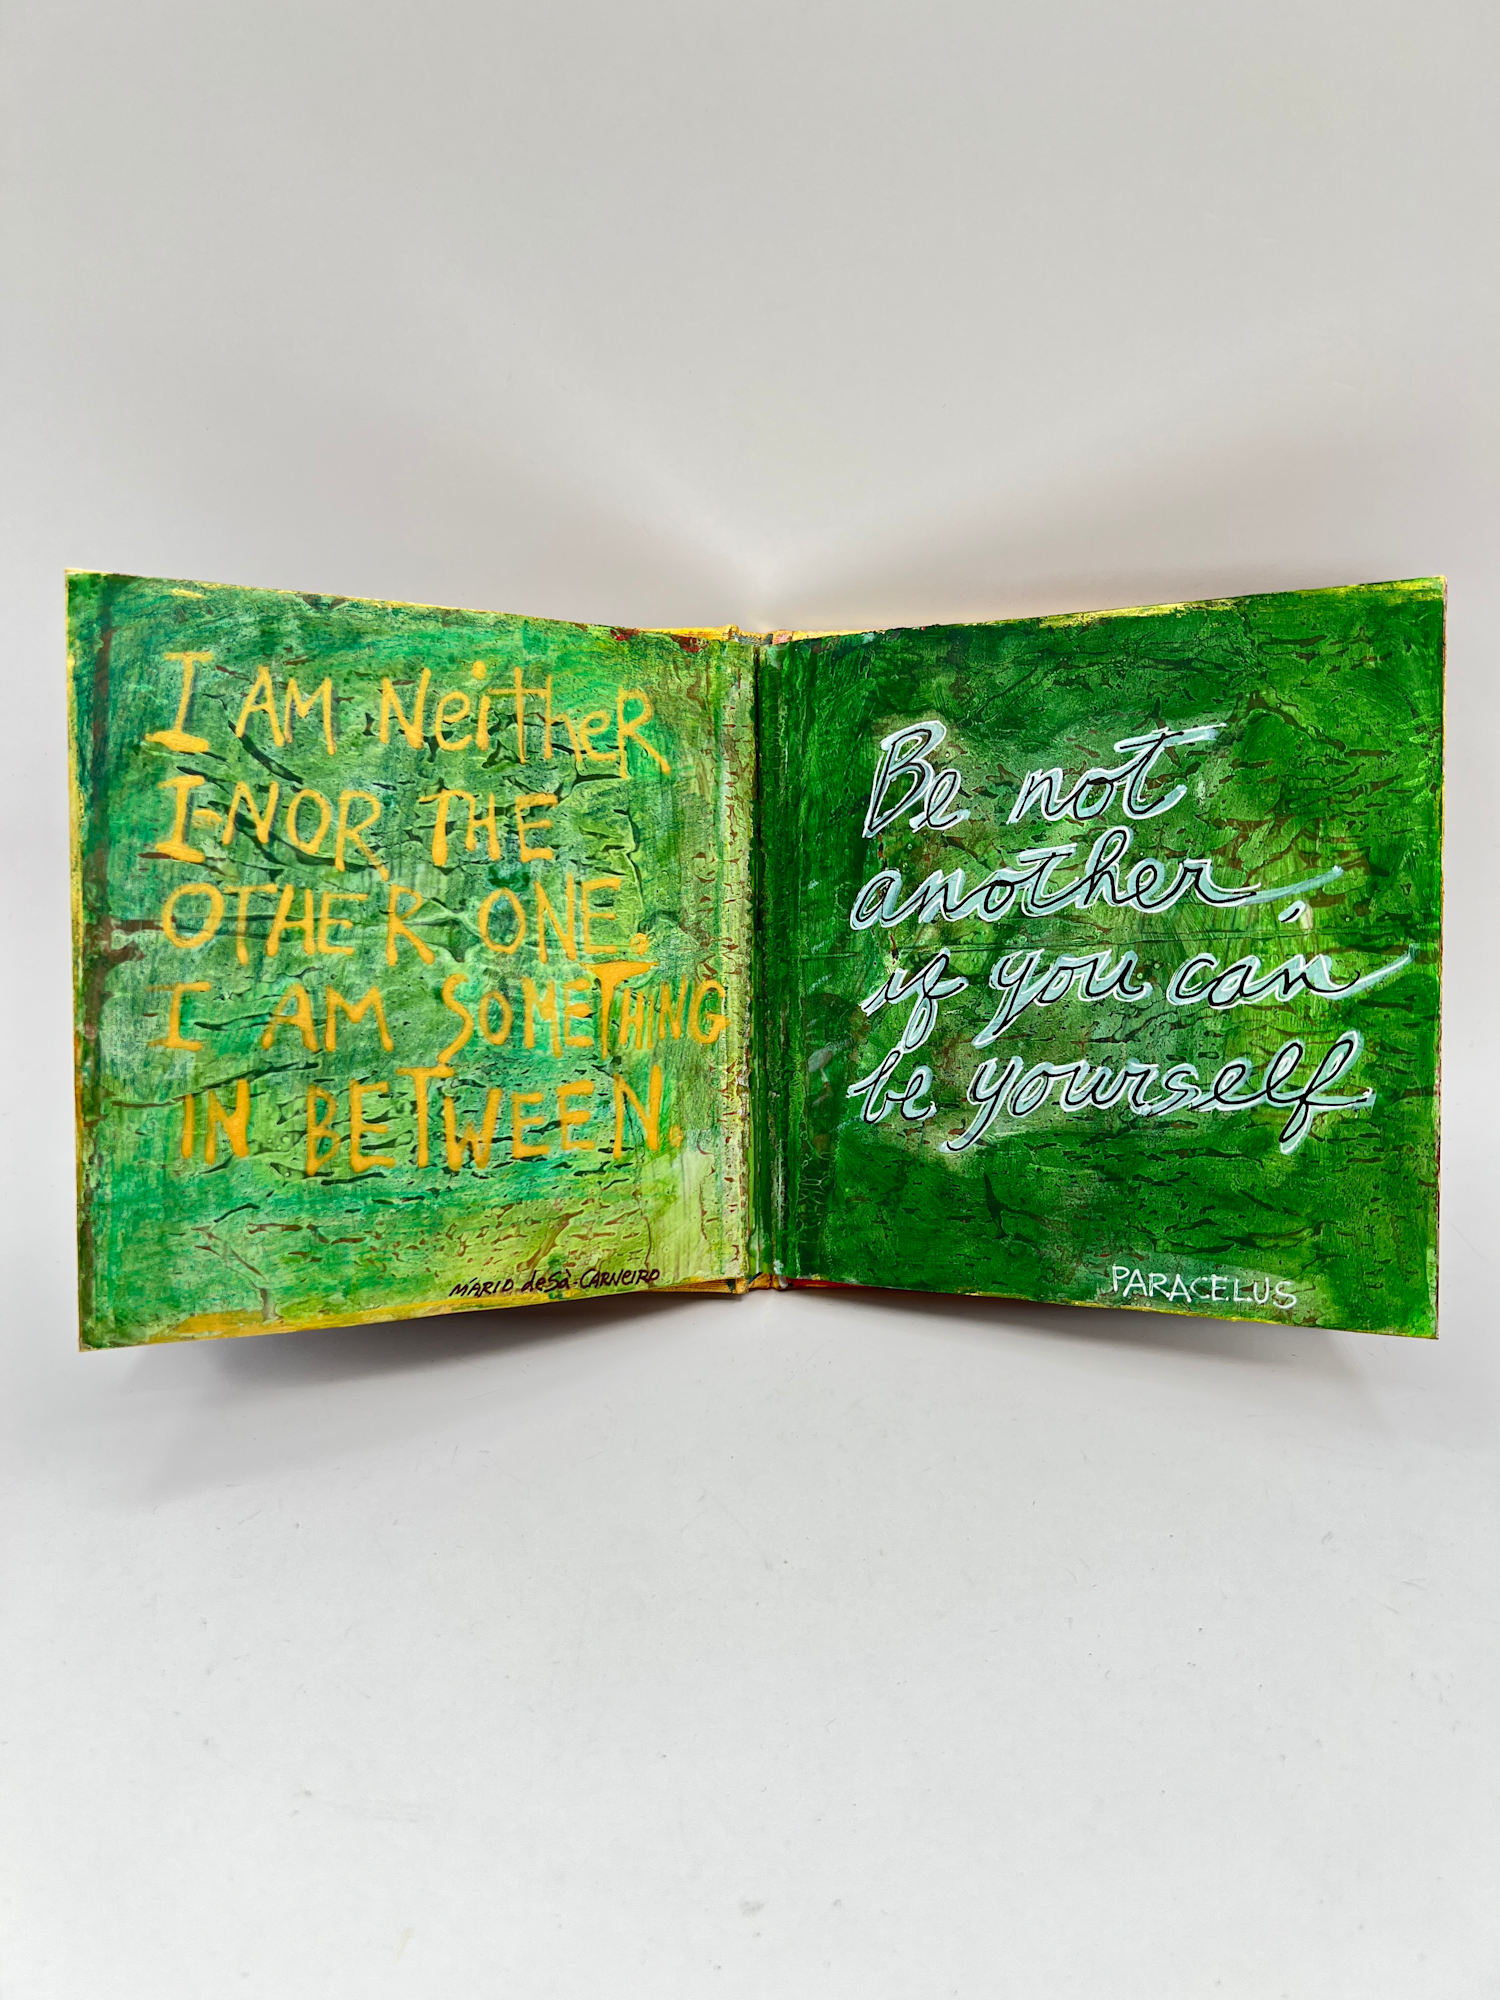 I AM Neither
I-NOR THE
OTHER ONE.
I AM SOMETHING
IN BETWEEN.
MÁRIO deSà-CARNEIRO
Be not
another,
if you can
be yourself
PARACELUS